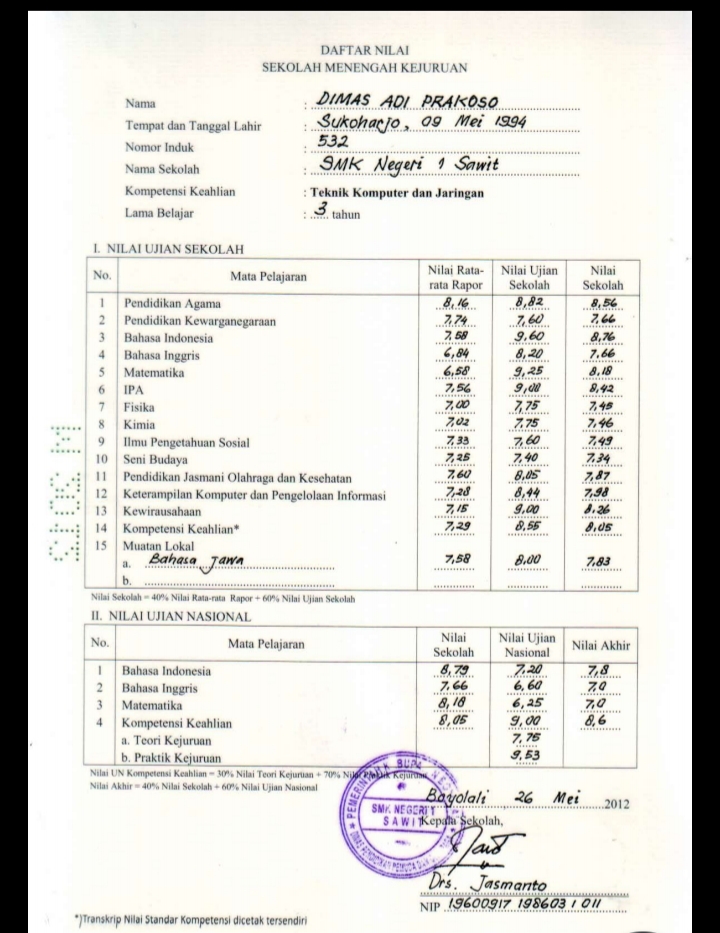 DAFTAR NILAI
SEKOLAH MENENGAH KEJURUAN
Nama : DIMAS ADI PRAKOSO
Tempat dan Tanggal Lahir : Sukoharjo, 09 Mei 1994
Nomor Induk : 532
Nama Sekolah : SMK Negeri 1 Sawit
Kompetensi Keahlian : Teknik Komputer dan Jaringan
Lama Belajar : 3 tahun
I. NILAI UJIAN SEKOLAH
No. Mata Pelajaran Nilai Rata-rata Rapor Nilai Ujian Sekolah Nilai Sekolah
1 Pendidikan Agama 8,16 8,82 8,56
2 Pendidikan Kewarganegaraan 7,74 7,60 7,66
3 Bahasa Indonesia 7,58 9,60 8,76
4 Bahasa Inggris 6,84 8,20 7,66
5 Matematika 6,58 9,25 8,18
6 IPA 7,56 9,00 8,42
7 Fisika 7,00 7,75 7,45
8 Kimia 7,02 7,75 7,46
9 Ilmu Pengetahuan Sosial 7,33 7,60 7,49
10 Seni Budaya 7,25 7,40 7,34
11 Pendidikan Jasmani Olahraga dan Kesehatan 7,60 8,05 7,87
12 Keterampilan Komputer dan Pengelolaan Informasi 7,28 8,44 7,98
13 Kewirausahaan 7,15 9,00 8,26
14 Kompetensi Keahlian* 7,29 8,55 8,05
15 Muatan Lokal
a. Bahasa Jawa 7,58 8,00 7,83
b.
Nilai Sekolah = 40% Nilai Rata-rata Rapor + 60% Nilai Ujian Sekolah
II. NILAI UJIAN NASIONAL
No. Mata Pelajaran Nilai Sekolah Nilai Ujian Nasional Nilai Akhir
1 Bahasa Indonesia 8,79 7,20 7,8
2 Bahasa Inggris 7,66 6,60 7,0
3 Matematika 8,18 6,25 7,0
4 Kompetensi Keahlian 8,05 9,00 8,6
a. Teori Kejuruan 7,75
b. Praktik Kejuruan 9,53
Nilai UN Kompetensi Keahlian = 30% Nilai Teori Kejuruan + 70% Nilai Praktik Kejuruan
Nilai Akhir = 40% Nilai Sekolah + 60% Nilai Ujian Nasional
Boyolali 26 Mei 2012
Kepala Sekolah,
SMK NEGERI 1
SAWIT
Drs. Jasmanto
NIP 19600917 198603 1 011
*)Transkrip Nilai Standar Kompetensi dicetak tersendiri